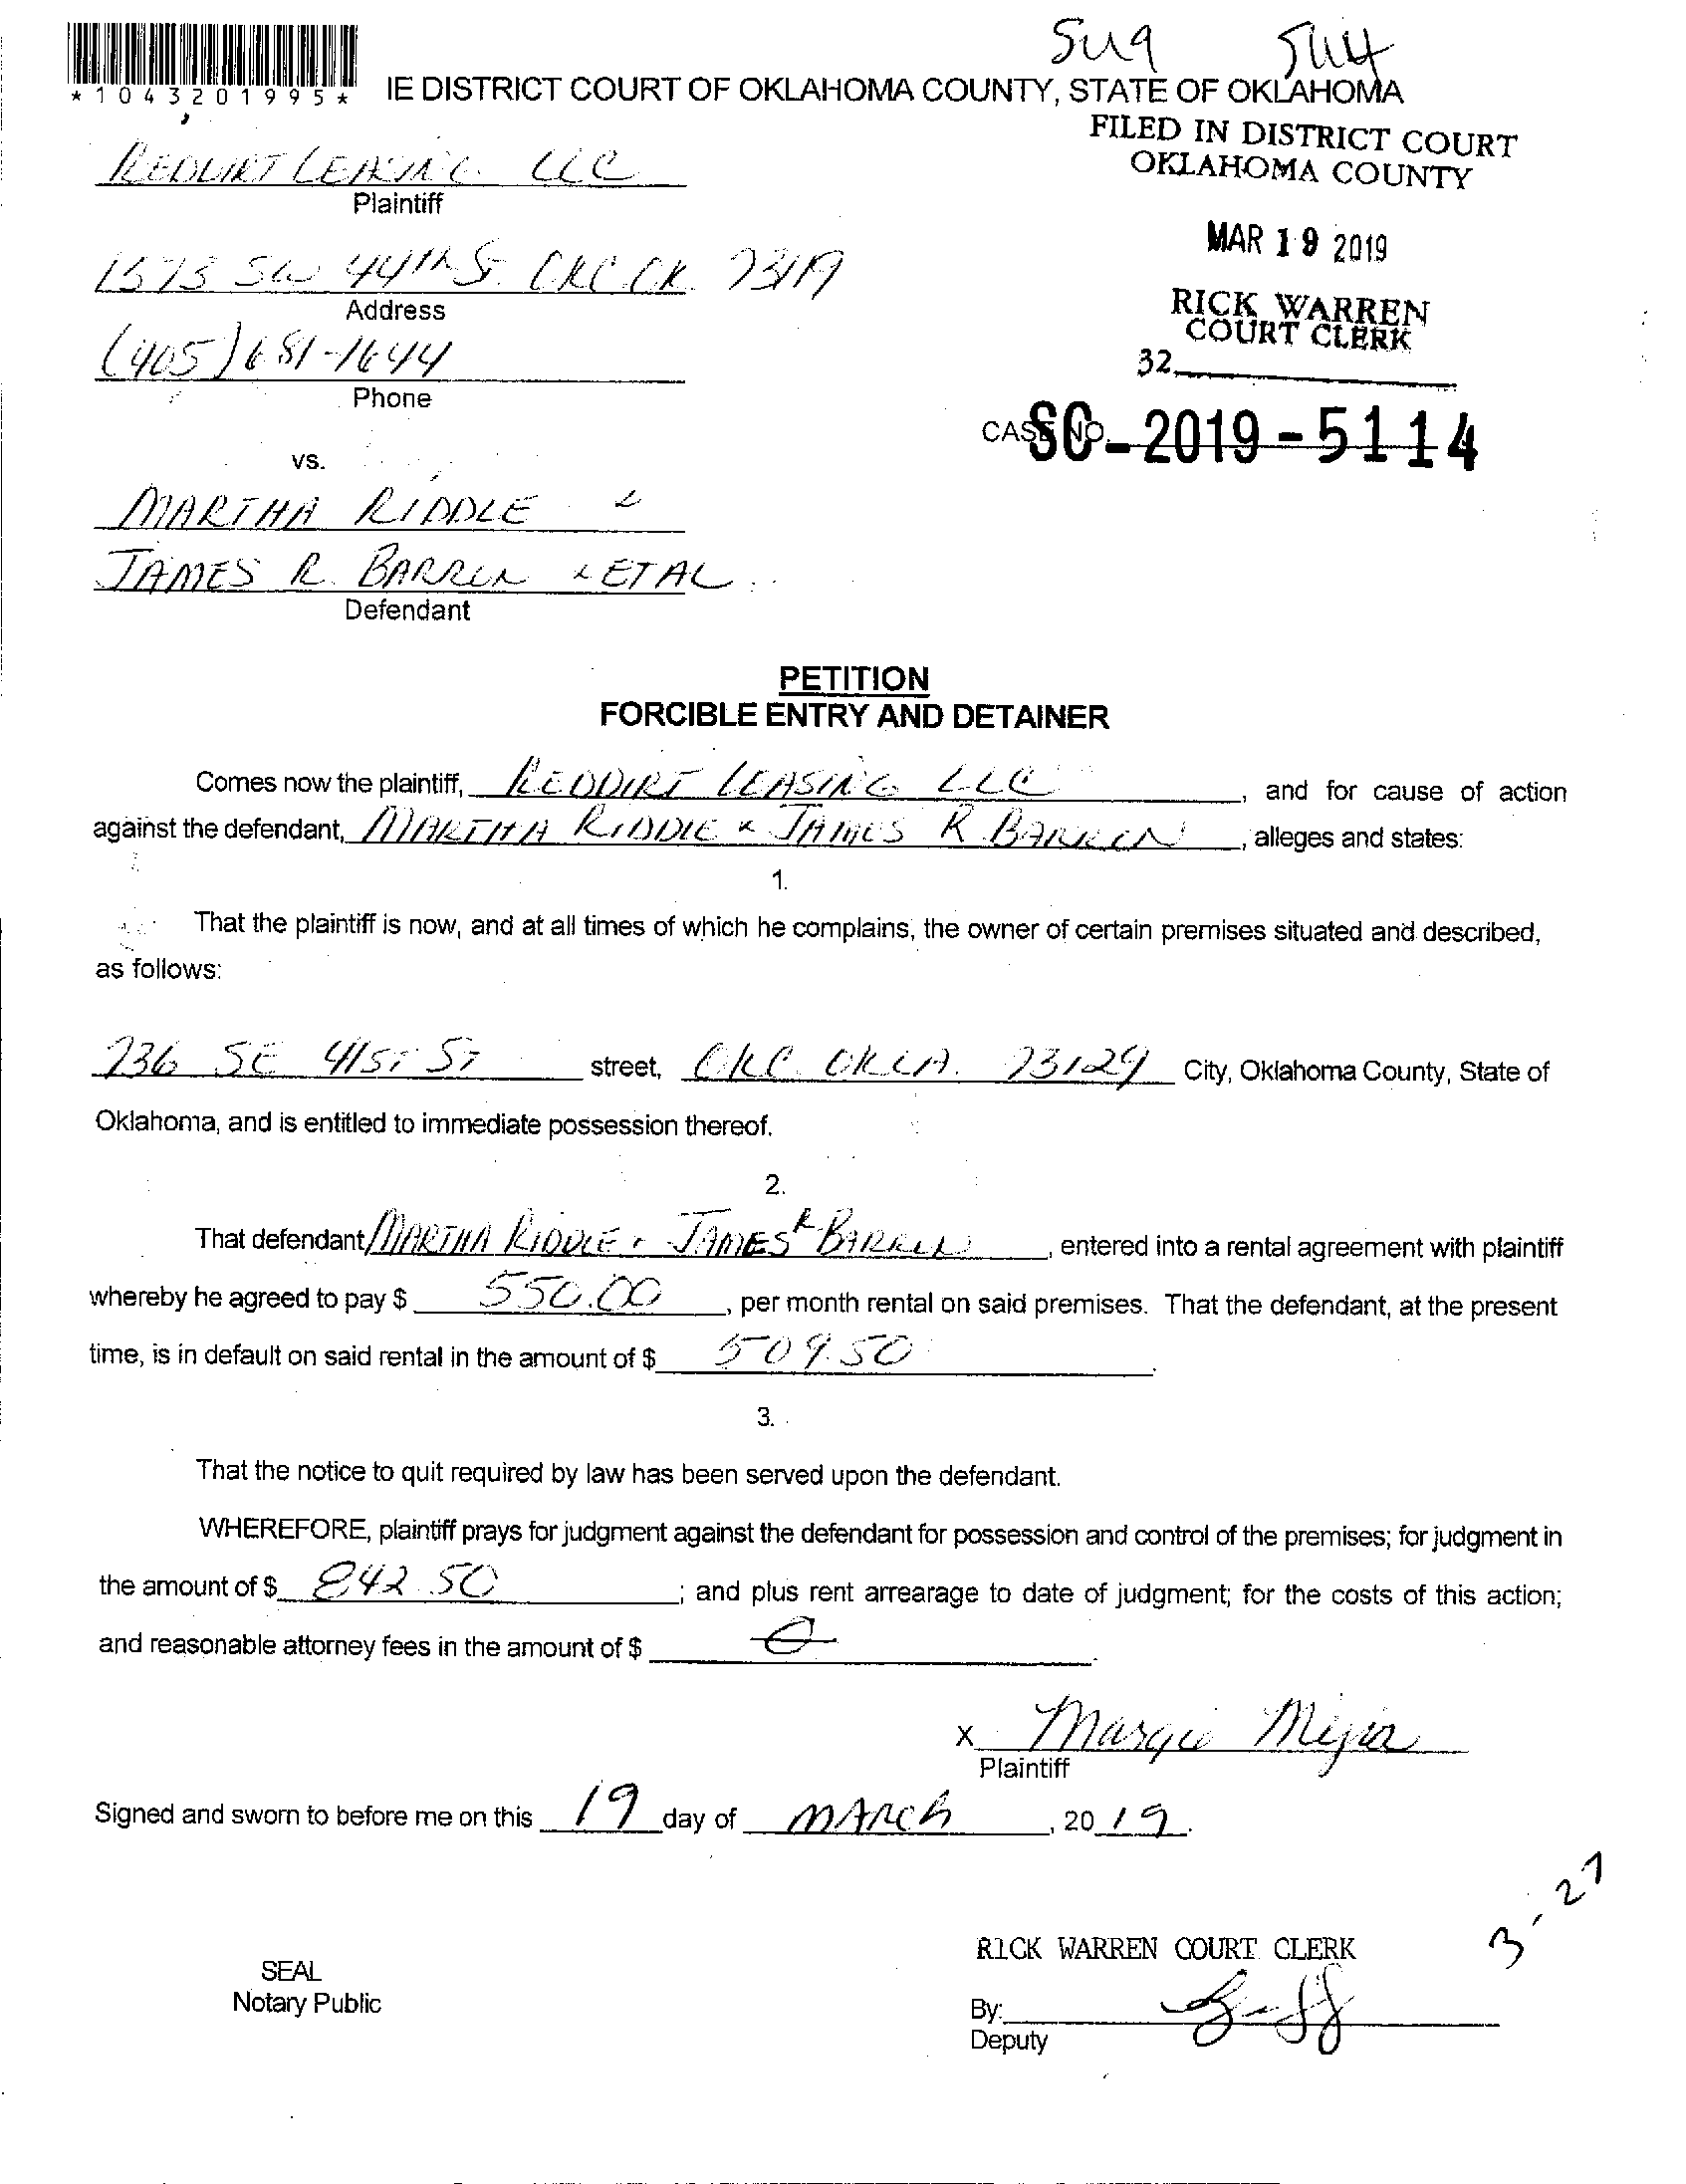 Su9 5114
*1043201995*
IE DISTRICT COURT OF OKLAHOMA COUNTY, STATE OF OKLAHOMA
FILED IN DISTRICT COURT
OKLAHOMA COUNTY
REDDIRT LEASING LLC
Plaintiff
MAR 19 2019
SW 44th St. OKC OK. 73119
Address
RICK WARREN
COURT CLERK
(405) 681-1644
32
Phone
CASE NO. SC-2019-5114
vs.
MARTHA RIDDLE &
JAMES R. BARREN & ETAL
Defendant
PETITION
FORCIBLE ENTRY AND DETAINER
Comes now the plaintiff, REDDIRT LEASING LLC, and for cause of action
against the defendant, MARTHA RIDDLE & JAMES R BARREN, alleges and states:
1.
That the plaintiff is now, and at all times of which he complains, the owner of certain premises situated and described,
as follows:
736 SE 41ST ST street, OKC OKLA. 73129 City, Oklahoma County, State of
Oklahoma, and is entitled to immediate possession thereof.
2.
That defendant MARTHA RIDDLE & JAMES R BARREN, entered into a rental agreement with plaintiff
whereby he agreed to pay $ 550.00, per month rental on said premises. That the defendant, at the present
time, is in default on said rental in the amount of $ 509.50.
3.
That the notice to quit required by law has been served upon the defendant.
WHEREFORE, plaintiff prays for judgment against the defendant for possession and control of the premises; for judgment in
the amount of $ 842.50; and plus rent arrearage to date of judgment; for the costs of this action;
and reasonable attorney fees in the amount of $ 0.
X Margie Mejia
Plaintiff
Signed and sworn to before me on this 19 day of MARCh, 2019.
3-27
RICK WARREN COURT CLERK
SEAL
Notary Public
By:
Deputy